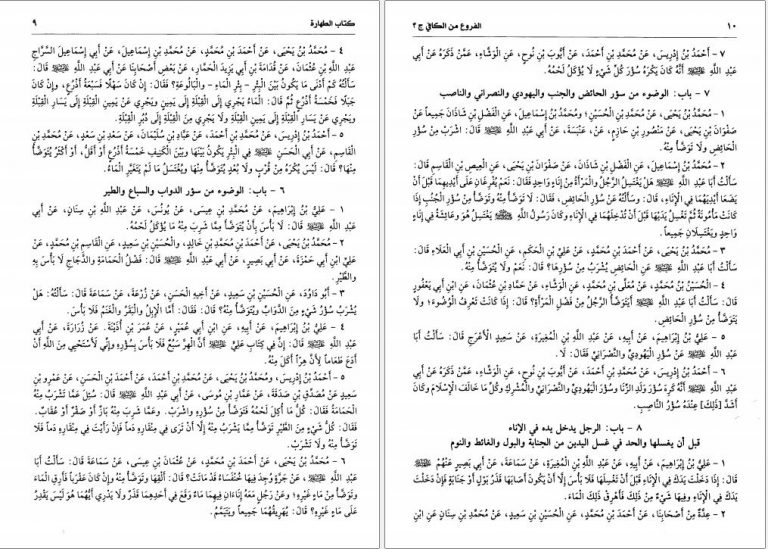 كتاب الطهارة ٩
٤ - مُحَمَّدُ بْنُ يَحْيَى، عَنْ أَحْمَدَ بْنِ مُحَمَّدٍ، عَنْ مُحَمَّدِ بْنِ إِسْمَاعِيلَ، عَنْ أَبِي إِسْمَاعِيلَ السَّرَّاجِ
عَبْدِ اللَّهِ بْنِ عُثْمَانَ، عَنْ قُدَامَةَ بْنِ أَبِي يَزِيدَ الْحَمَّارِ، عَنْ بَعْضِ أَصْحَابِنَا عَنْ أَبِي عَبْدِ اللَّهِ قَالَ:
سَأَلْتُهُ كَمْ أَدْنَى مَا يَكُونُ بَيْنَ الْبِئْرِ - بِئْرِ الْمَاءِ - وَالْبَالُوعَةِ؟ فَقَالَ: إِنْ كَانَ سَهْلًا فَسَبْعَةُ أَذْرُعٍ، وَإِنْ كَانَ
جَبَلًا فَخَمْسَةُ أَذْرُعٍ ثُمَّ قَالَ: الْمَاءُ يَجْرِي إِلَى الْقِبْلَةِ إِلَى يَمِينٍ وَيَجْرِي عَنْ يَمِينِ الْقِبْلَةِ إِلَى يَسَارِ الْقِبْلَةِ،
وَيَجْرِي عَنْ يَسَارِ الْقِبْلَةِ إِلَى يَمِينِ الْقِبْلَةِ وَلَا يَجْرِي مِنَ الْقِبْلَةِ إِلَى دُبُرِ الْقِبْلَةِ.
٥ - أَحْمَدُ بْنُ إِدْرِيسَ، عَنْ مُحَمَّدِ بْنِ أَحْمَدَ، عَنْ عَبَّادِ بْنِ سُلَيْمَانَ، عَنْ سَعْدِ بْنِ سَعْدٍ، عَنْ مُحَمَّدِ بْنِ
الْقَاسِمِ، عَنْ أَبِي الْحَسَنِ فِي الْبِئْرِ يَكُونُ بَيْنَهَا وَبَيْنَ الْكَنِيفِ خَمْسَةُ أَذْرُعٍ أَوْ أَقَلُّ، أَوْ أَكْثَرُ يُتَوَضَّأُ
مِنْهَا؟ قَالَ: لَيْسَ يُكْرَهُ مِنْ قُرْبٍ وَلَا بُعْدٍ يُتَوَضَّأُ مِنْهَا وَيُغْتَسَلُ مَا لَمْ يَتَغَيَّرِ الْمَاءُ.
٦ - باب: الوضوء من سؤر الدواب والسباع والطير
١ - عَلِيُّ بْنُ إِبْرَاهِيمَ، عَنْ مُحَمَّدِ بْنِ عِيسَى، عَنْ يُونُسَ، عَنْ عَبْدِ اللَّهِ بْنِ سِنَانٍ، عَنْ أَبِي
عَبْدِ اللَّهِ قَالَ: لَا بَأْسَ بِأَنْ يُتَوَضَّأَ مِمَّا شَرِبَ مِنْهُ مَا يُؤْكَلُ لَحْمُهُ.
٢ - مُحَمَّدُ بْنُ يَحْيَى، عَنْ أَحْمَدَ بْنِ مُحَمَّدِ بْنِ خَالِدٍ، وَالْحُسَيْنِ بْنِ سَعِيدٍ، عَنِ الْقَاسِمِ بْنِ مُحَمَّدٍ، عَنْ
عَلِيِّ ابْنِ أَبِي حَمْزَةَ، عَنْ أَبِي بَصِيرٍ، عَنْ أَبِي عَبْدِ اللَّهِ قَالَ: فَضْلُ الْحَمَامَةِ وَالدَّجَاجِ لَا بَأْسَ بِهِ
وَالطَّيْرِ.
٣ - أَبُو دَاوُدَ، عَنِ الْحُسَيْنِ بْنِ سَعِيدٍ، عَنْ أَخِيهِ الْحَسَنِ، عَنْ زُرْعَةَ، عَنْ سَمَاعَةَ قَالَ: سَأَلْتُهُ: هَلْ
يُشْرَبُ سُؤْرُ شَيْءٍ مِنَ الدَّوَابِّ وَيُتَوَضَّأُ مِنْهُ؟ قَالَ: فَقَالَ: أَمَّا الْإِبِلُ وَالْبَقَرُ وَالْغَنَمُ فَلَا بَأْسَ.
٤ - عَلِيُّ بْنُ إِبْرَاهِيمَ، عَنْ أَبِيهِ، عَنِ ابْنِ أَبِي عُمَيْرٍ، عَنْ عُمَرَ بْنِ أُذَيْنَةَ، عَنْ زُرَارَةَ، عَنْ أَبِي
عَبْدِ اللَّهِ قَالَ: إِنَّ فِي كِتَابِ عَلِيٍّ أَنَّ الْهِرَّ سَبُعٌ فَلَا بَأْسَ بِسُؤْرِهِ وَإِنِّي لَأَسْتَحْيِي مِنَ اللَّهِ أَنْ
أَدَعَ طَعَاماً لِأَنَّ هِرًّا أَكَلَ مِنْهُ.
٥ - أَحْمَدُ بْنُ إِدْرِيسَ، وَمُحَمَّدُ بْنُ يَحْيَى، عَنْ مُحَمَّدِ بْنِ أَحْمَدَ، عَنْ أَحْمَدَ بْنِ الْحَسَنِ، عَنْ عَمْرِو بْنِ
سَعِيدٍ عَنْ مُصَدِّقِ بْنِ صَدَقَةَ، عَنْ عَمَّارِ بْنِ مُوسَى، عَنْ أَبِي عَبْدِ اللَّهِ قَالَ: سُئِلَ عَمَّا تَشْرَبُ مِنْهُ
الْحَمَامَةُ فَقَالَ: كُلُّ مَا أُكِلَ لَحْمُهُ فَتَوَضَّأْ مِنْ سُؤْرِهِ وَاشْرَبْ. وَعَمَّا شَرِبَ مِنْهُ بَازٌ أَوْ صَقْرٌ أَوْ عُقَابٌ.
فَقَالَ: كُلُّ شَيْءٍ مِنَ الطَّيْرِ تَوَضَّأْ مِمَّا يَشْرَبُ مِنْهُ إِلَّا أَنْ تَرَى فِي مِنْقَارِهِ دَماً فَإِنْ رَأَيْتَ فِي مِنْقَارِهِ دَماً فَلَا
تَوَضَّأْ مِنْهُ وَلَا تَشْرَبْ.
٦ - مُحَمَّدُ بْنُ يَحْيَى، عَنْ أَحْمَدَ بْنِ مُحَمَّدٍ، عَنْ عُثْمَانَ بْنِ عِيسَى، عَنْ سَمَاعَةَ قَالَ: سَأَلْتُ أَبَا
عَبْدِ اللَّهِ ، عَنْ جَرَّةٍ وُجِدَ فِيهَا خُنْفَسَاءُ قَدْ مَاتَتْ؟ قَالَ: أَلْقِهَا وَتَوَضَّأْ مِنْهُ وَإِنْ كَانَ عَقْرَباً فَأَرِقِ الْمَاءَ
وَتَوَضَّأْ مِنْ مَاءٍ غَيْرِهِ؛ وَعَنْ رَجُلٍ مَعَهُ إِنَاءَانِ فِيهِمَا مَاءٌ وَقَعَ فِي أَحَدِهِمَا قَذَرٌ وَلَا يَدْرِي أَيُّهُمَا هُوَ لَيْسَ يَقْدِرُ
عَلَى مَاءٍ غَيْرِهِ؟ قَالَ: يُهَرِيقُهُمَا جَمِيعاً وَيَتَيَمَّمُ.
١٠ الفروع من الكافي ج ٣
٧ - أَحْمَدُ بْنُ إِدْرِيسَ، عَنْ مُحَمَّدِ بْنِ أَحْمَدَ، عَنْ أَيُّوبَ بْنِ نُوحٍ، عَنِ الْوَشَّاءِ، عَمَّنْ ذَكَرَهُ عَنْ أَبِي
عَبْدِ اللَّهِ أَنَّهُ كَانَ يَكْرَهُ سُؤْرَ كُلِّ شَيْءٍ لَا يُؤْكَلُ لَحْمُهُ.
٧ - باب: الوضوء من سؤر الحائض والجنب واليهودي والنصراني والناصب
١ - مُحَمَّدُ بْنُ يَحْيَى، عَنْ مُحَمَّدِ بْنِ الْحُسَيْنِ؛ وَمُحَمَّدُ بْنُ إِسْمَاعِيلَ، عَنِ الْفَضْلِ بْنِ شَاذَانَ جَمِيعاً عَنْ
صَفْوَانَ بْنِ يَحْيَى، عَنْ مَنْصُورِ بْنِ حَازِمٍ، عَنْ عَنْبَسَةَ، عَنْ أَبِي عَبْدِ اللَّهِ قَالَ: اشْرَبْ مِنْ سُؤْرِ
الْحَائِضِ وَلَا تَوَضَّأْ مِنْهُ.
٢ - مُحَمَّدُ بْنُ إِسْمَاعِيلَ، عَنِ الْفَضْلِ بْنِ شَاذَانَ، عَنْ صَفْوَانَ بْنِ يَحْيَى، عَنِ الْعِيصِ بْنِ الْقَاسِمِ قَالَ:
سَأَلْتُ أَبَا عَبْدِ اللَّهِ هَلْ يَغْتَسِلُ الرَّجُلُ وَالْمَرْأَةُ مِنْ إِنَاءٍ وَاحِدٍ فَقَالَ: نَعَمْ يُفْرِغَانِ عَلَى أَيْدِيهِمَا قَبْلَ أَنْ
يَضَعَا أَيْدِيَهُمَا فِي الْإِنَاءِ، قَالَ: وَسَأَلْتُهُ عَنْ سُؤْرِ الْحَائِضِ، فَقَالَ: لَا تَوَضَّأْ مِنْهُ وَتَوَضَّأْ مِنْ سُؤْرِ الْجُنُبِ إِذَا
كَانَتْ مَأْمُونَةً ثُمَّ تَغْسِلُ يَدَيْهَا قَبْلَ أَنْ تُدْخِلَهُمَا فِي الْإِنَاءِ وَكَانَ رَسُولُ اللَّهِ يَغْتَسِلُ هُوَ وَعَائِشَةُ فِي إِنَاءٍ
وَاحِدٍ وَيَغْتَسِلَانِ جَمِيعاً.
٣ - مُحَمَّدُ بْنُ يَحْيَى، عَنْ أَحْمَدَ بْنِ مُحَمَّدٍ، عَنْ عَلِيِّ بْنِ الْحَكَمِ، عَنِ الْحُسَيْنِ بْنِ أَبِي الْعَلَاءِ قَالَ:
سَأَلْتُ أَبَا عَبْدِ اللَّهِ عَنِ الْحَائِضِ يُشْرَبُ مِنْ سُؤْرِهَا؟ قَالَ: نَعَمْ وَلَا يُتَوَضَّأُ مِنْهُ.
٤ - الْحُسَيْنُ بْنُ مُحَمَّدٍ، عَنْ مُعَلَّى بْنِ مُحَمَّدٍ، عَنِ الْوَشَّاءِ، عَنْ حَمَّادِ بْنِ عُثْمَانَ، عَنِ ابْنِ أَبِي يَعْفُورٍ
قَالَ: سَأَلْتُ أَبَا عَبْدِ اللَّهِ أَيَتَوَضَّأُ الرَّجُلُ مِنْ فَضْلِ الْمَرْأَةِ؟ قَالَ: إِذَا كَانَتْ تَعْرِفُ الْوُضُوءَ؛ وَلَا
يُتَوَضَّأُ مِنْ سُؤْرِ الْحَائِضِ.
٥ - عَلِيُّ بْنُ إِبْرَاهِيمَ، عَنْ أَبِيهِ، عَنْ عَبْدِ اللَّهِ بْنِ الْمُغِيرَةِ، عَنْ سَعِيدٍ الْأَعْرَجِ قَالَ: سَأَلْتُ أَبَا
عَبْدِ اللَّهِ عَنْ سُؤْرِ الْيَهُودِيِّ وَالنَّصْرَانِيِّ فَقَالَ: لَا.
٦ - أَحْمَدُ بْنُ إِدْرِيسَ، عَنْ مُحَمَّدِ بْنِ أَحْمَدَ، عَنْ أَيُّوبَ بْنِ نُوحٍ، عَنِ الْوَشَّاءِ، عَمَّنْ ذَكَرَهُ عَنْ أَبِي
عَبْدِ اللَّهِ أَنَّهُ كَرِهَ سُؤْرَ وَلَدِ الزِّنَا وَسُؤْرَ الْيَهُودِيِّ وَالنَّصْرَانِيِّ وَالْمُشْرِكِ وَكُلِّ مَا خَالَفَ الْإِسْلَامَ وَكَانَ
أَشَدَّ [ذَلِكَ] عِنْدَهُ سُؤْرُ النَّاصِبِ.
٨ - باب: الرجل يدخل يده في الإناء
قبل أن يغسلها والحد في غسل اليدين من الجنابة والبول والغائط والنوم
١ - عَلِيُّ بْنُ إِبْرَاهِيمَ، عَنْ أَبِيهِ، عَنْ عَبْدِ اللَّهِ بْنِ الْمُغِيرَةِ، عَنْ سَمَاعَةَ، عَنْ أَبِي بَصِيرٍ عَنْهُمْ
قَالَ: إِذَا دَخَلَتْ يَدُكَ فِي الْإِنَاءِ قَبْلَ أَنْ تَغْسِلَهَا فَلَا بَأْسَ إِلَّا أَنْ يَكُونَ أَصَابَهَا قَذَرُ بَوْلٍ أَوْ جَنَابَةٍ فَإِنْ دَخَلَتْ
يَدُكَ فِي الْإِنَاءِ وَفِيهَا شَيْءٌ مِنْ ذَلِكَ فَأَهْرِقْ ذَلِكَ الْمَاءَ.
٢ - عِدَّةٌ مِنْ أَصْحَابِنَا، عَنْ أَحْمَدَ بْنِ مُحَمَّدٍ، عَنِ الْحُسَيْنِ بْنِ سَعِيدٍ، عَنْ مُحَمَّدِ بْنِ سِنَانٍ عَنِ ابْنِ